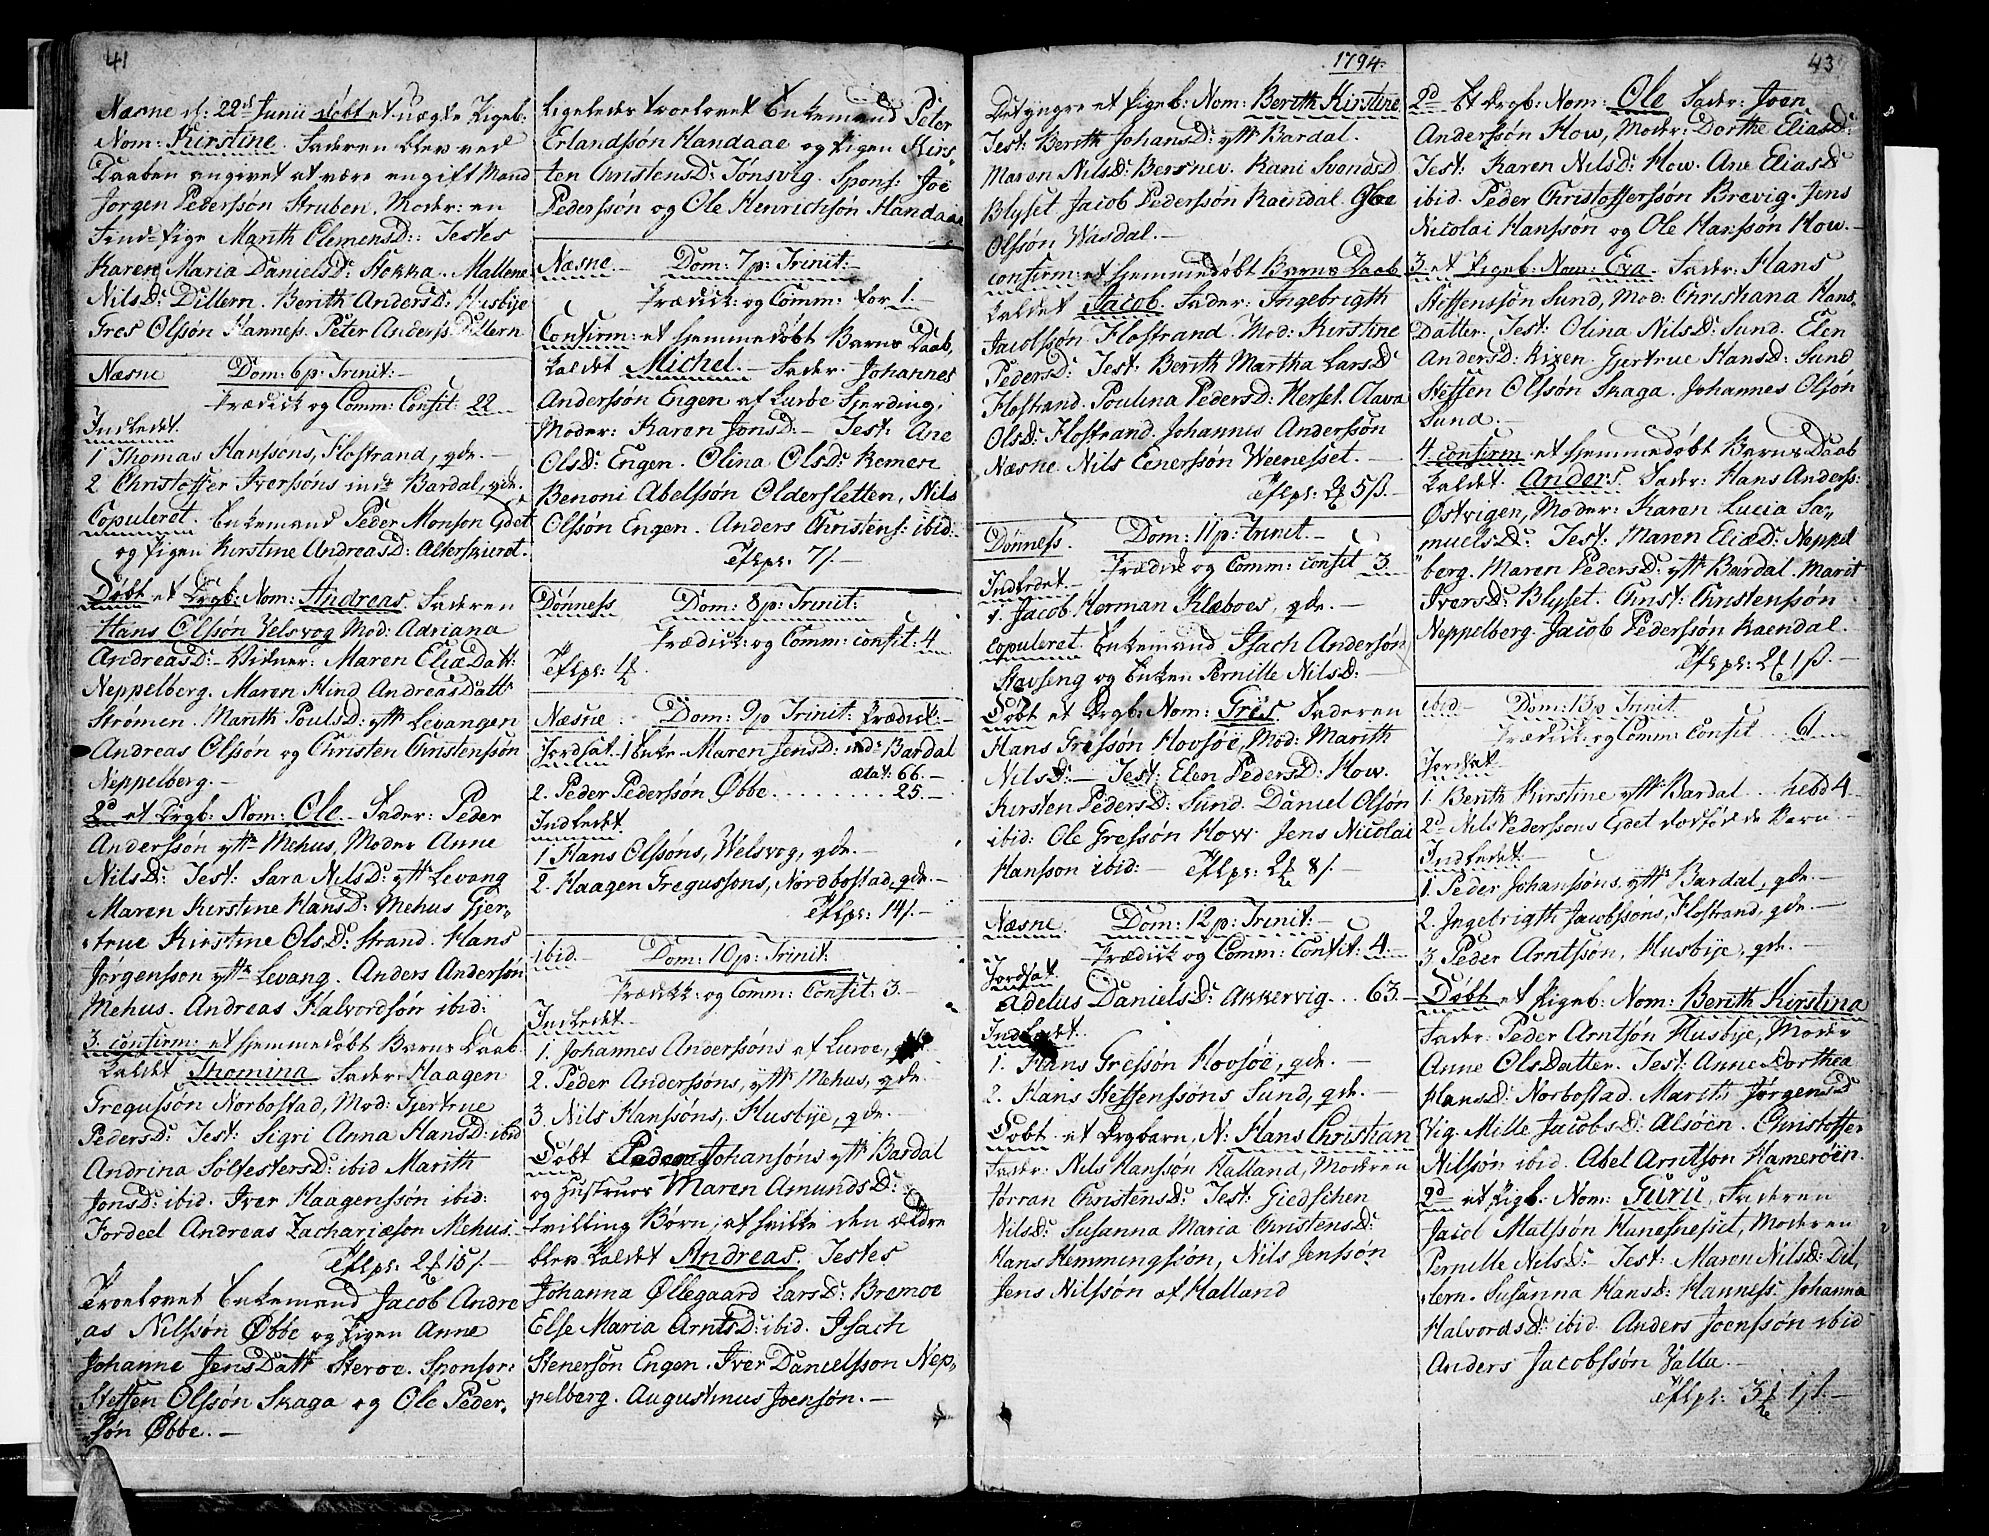 41
Næsne d: 22de Junii døbt et uægte Pigeb:
Nom: Kirstine. Faderen blev ved
Daaben angivet at være en gift Mand
Jørgen Pederssøn Struben. Moder: en
Find-Pige Marith ClemensD: Testes
Karen Maria DanielsD: Stokka. Mallene
NilsD: Dillern. Berith AndersD: Husbye
Gres Olssøn Hanness. Peter Anderss: Dillern
Næsne Dom: 6 p: Trinit:
Prædick og Comm: Confit: 22
Indledt.
1 Thomas Hanssøns, Flostrand, qde.
2 Christoffer Iverssøns ind: Bardal, qde.
Copuleret. Enkemand Peder Monson Edet
og Pigen Kirstine AndreasD: Alterskieret.
Døbt et Drgb: Nom: Andreas. Faderen
Hans Olssøn Velsvog Mod: Adriana
AndreasD: Vidner: Maren EliæDatt:
Neppelberg. Maren Hind AndreasDatt:
Strømen. Marith PoulsD: ytt: Levangen
Andreas Olssøn og Christen Christenssøn
Neppelberg.
2d et Drgb: Nom: Ole. Fader: Peder
Anderssøn ytt: Mehus, Moder Anne
NilsD: Test: Sara NilsD: ytt: Levang
Maren Kirstine HansD: Mehus Gjer-
true Kirstine OlsD: Strand. Hans
Jørgensson ytt: Levang. Anders Anderssøn
Mehus. Andreas Halvordsøn ibid:
3. confirm: et hjemmedøbt Barns Daab
kaldet Thomina Fader: Haagen
Gregussøn Norbostad, Mod: Gjertrue
PedersD: Test: Sigri Anna HansD: ibid
Andrina SolfestersD: ibid Marith
JonsD: ibid. Iver Haagenssøn ibid:
Fordeel Andreas Zachariæson Mehus.
Trolovet Enkemand Jacob Andre
as Nilssøn Øbbe og Pigen Anne
Johanne JensDatt: Steroe. Sponsor:
Steffen Olssøn Skaga og Ole Peder-
søn Øbbe.
Ligeledes troelovet Enkemand Peter
Erlandssøn Handaae og Pigen Kirs-
ten ChristensD: Tønsvig. Spons: Joe
Pederssøn og Ole Henrichsøn Handaae
Næsne Dom: 7 p: Trinit:
Prædick: og Comm: for 1.
Confirm: et hjemmedøbt Barns Daab,
kaldet Michel. Fader Johannes
Anderssøn Engen af Luroe Fjerding,
Moder: Karen JonsD: Test: Ane
OlsD: Engen. Olina OlsD: Remen
Benoni Abelssøn Oldersletten, Nils
Olssøn Engen. Anders Christens: ibid:
Dønness Dom: 8 p: Trinit:
Prædick: og Comm: confit: 4
Næsne Dom: 9 p Trinit: Prædick:
Jordsat. 1 Enke Maren JensD: ind: Bardal
ætat: 66.
2. Peder Pederssøn Øbbe 25.
Indledt.
1 Hans Olssøns, Welsvog, qde.
2. Haagen Gregussons, Nordbostad, qde.
ibid. Dom: 10 p: Trinit:
Prædick: og Comm: Confit: 3.
Indledt.
1. Johannes Anderssøns af Luroe, qde.
2. Peder Anderssøns, ytt: Mehus, qde.
3. Nils Hanssøns, Husbye, qde.
Døbt Peder Johansøns ytt: Bardal
og Hustrues Maren AmundsD:
Tvilling Børn, af hvilke den ældre
blev kaldet Andreas. Testes
Johanna Øllegaard LarsD: Bremoe
Else Maria ArntsD: ibid. Isach
Stenersøn Engen. Iver Danielsson Nep-
pelberg. Augustinus Joensøn.
1794.
Det yngre et Pigeb: Nom: Berith Kirstine
Test: Berith JohansD: ytt: Bardal.
Maren NilsD: Bersnev. Kani SvendsD
Blyset Jacob Pederssøn Kaendal. Gloe
Olssøn Wasdal.
confirm: et hjemmedøbt Barns Daab
kaldet Jacob. Fader: Ingebrigth
Jacobsøn Flostrand. Mod: Kirstine
PedersD: Test: Berith Martha LarsD
Flostrand. Poulina PedersD: Hersel. Olava
OlsD: Flostrand. Johannes Anderssøn
Næsne Nils Einerssøn Weenesset.
Dønness. Dom: 11 p: Trinit.
Prædick og Comm: confit 3
Indledet
1. Jacob Herman Klæboes, qde.
copuleret. Enkemand Isach Anderssøn
Stavseng og Enken Pernille NilsD:
Døbt et Drgb: Nom: Gres. Faderen
Hans Gressøn Hovsøe, Mod: Marith
NilsD: Test: Elen PedersD: How.
Kirsten PedersD: Sund. Daniel Olsøn
ibid: Ole Gressøn How Jens Nicolai
Hansson ibid:
Næsne Dom: 12 p: Trinit:
Prædick og Comm: Confit: 4.
Jordsat.
Adelus DanielsD: Akkervig. 63.
Indledt.
1. Hans Gressøn Hovsøe, qde.
2. Hans Steffenssøns Sund, qde.
Døbt et Drgbarn, N: Hans Christian
Fader: Nils Hanssøn Halland, Moderen
Jørran ChristensD: Test: Giedschen
NilsD: Susanna Maria ChristensD:
Hans Hemmingssøn, Nils Jenssøn
Jens Nilssøn af Halland
43
2d Et Drgb: Nom: Ole Fader: Joen
Anderssøn How, Moder: Dorthe EliasD:
Test: Karen NilsD: How. Ane EliasD
ibid. Peder Christofferssøn Brevig. Jens
Nicolai Hanssøn og Ole Hanssøn How.
3 et Pigeb: Nom: Eva. Fader: Hans
Steffenssøn Sund, Mod: Christiana Hans
Datter. Test: Olina NilsD: Sund. Elen
AndersD: Rixen. Gjertrue HansD: Sund
Steffen Olssøn Skaga. Johannes Olsøn
Sund.
4. confirm et hjemmedøbt Barns Daab
kaldet Anders Fader: Hans Anderss:
Østvigen, Moder: Karen Lucia Sa-
muelsD: Test: Maren EliæD: Neppel
berg. Maren PedersD: ytt: Bardal. Marit
IversD: Blyset. Christ: Christenssøn
Neppelberg. Jacob Pederssøn Kaendal.
ibid Dom: 13 p Trinit.
Prædick: og Comm: Confit 61
Jordsat
1. Berith Kirstine ytt: Bardal hebd 4
2d Nils Pederssøns Edet dødfødde Barn
Indledt
1. Peder Johanssøns, ytt: Bardal, qde.
2. Ingebrigth Jacobssøns, Flostrand, qde.
3. Peder Arntssøn, Husbye, qde.
Døbt et Pigeb: Nom: Berith Kirstina
Fader: Peder Arntsøn Husbye, Moder
Anne OlsDatter. Test: Anne Dorthea
HansD: Norbostad. Marith JørgensD
Vig. Mille JacobsD: Alsøen. Christoffer
Nilssøn ibid. Abel Arntsøn Hamerøen.
2d et Pigb: Nom: Guru, Faderen
Jacob Matssøn Hanesnesset, Moderen
Pernille NilsD: Test: Maren NilsD: Dil,
lern. Susanna HansD: Hanness. Johanna
HalvordsD: ibid. Anders Joenssøn ibid
Anders Jacobssøn Valla.